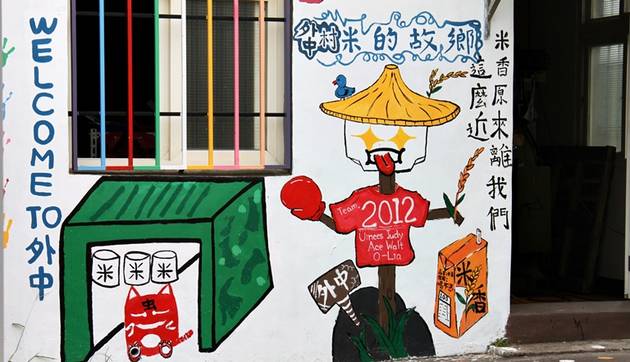 WELCOME TO 外中
外中村米的故鄉
米香原來離我們
這麼近
Team.
2012
Umees Judy
Ace Walt
O-Lia
外中
米 米 米
米香